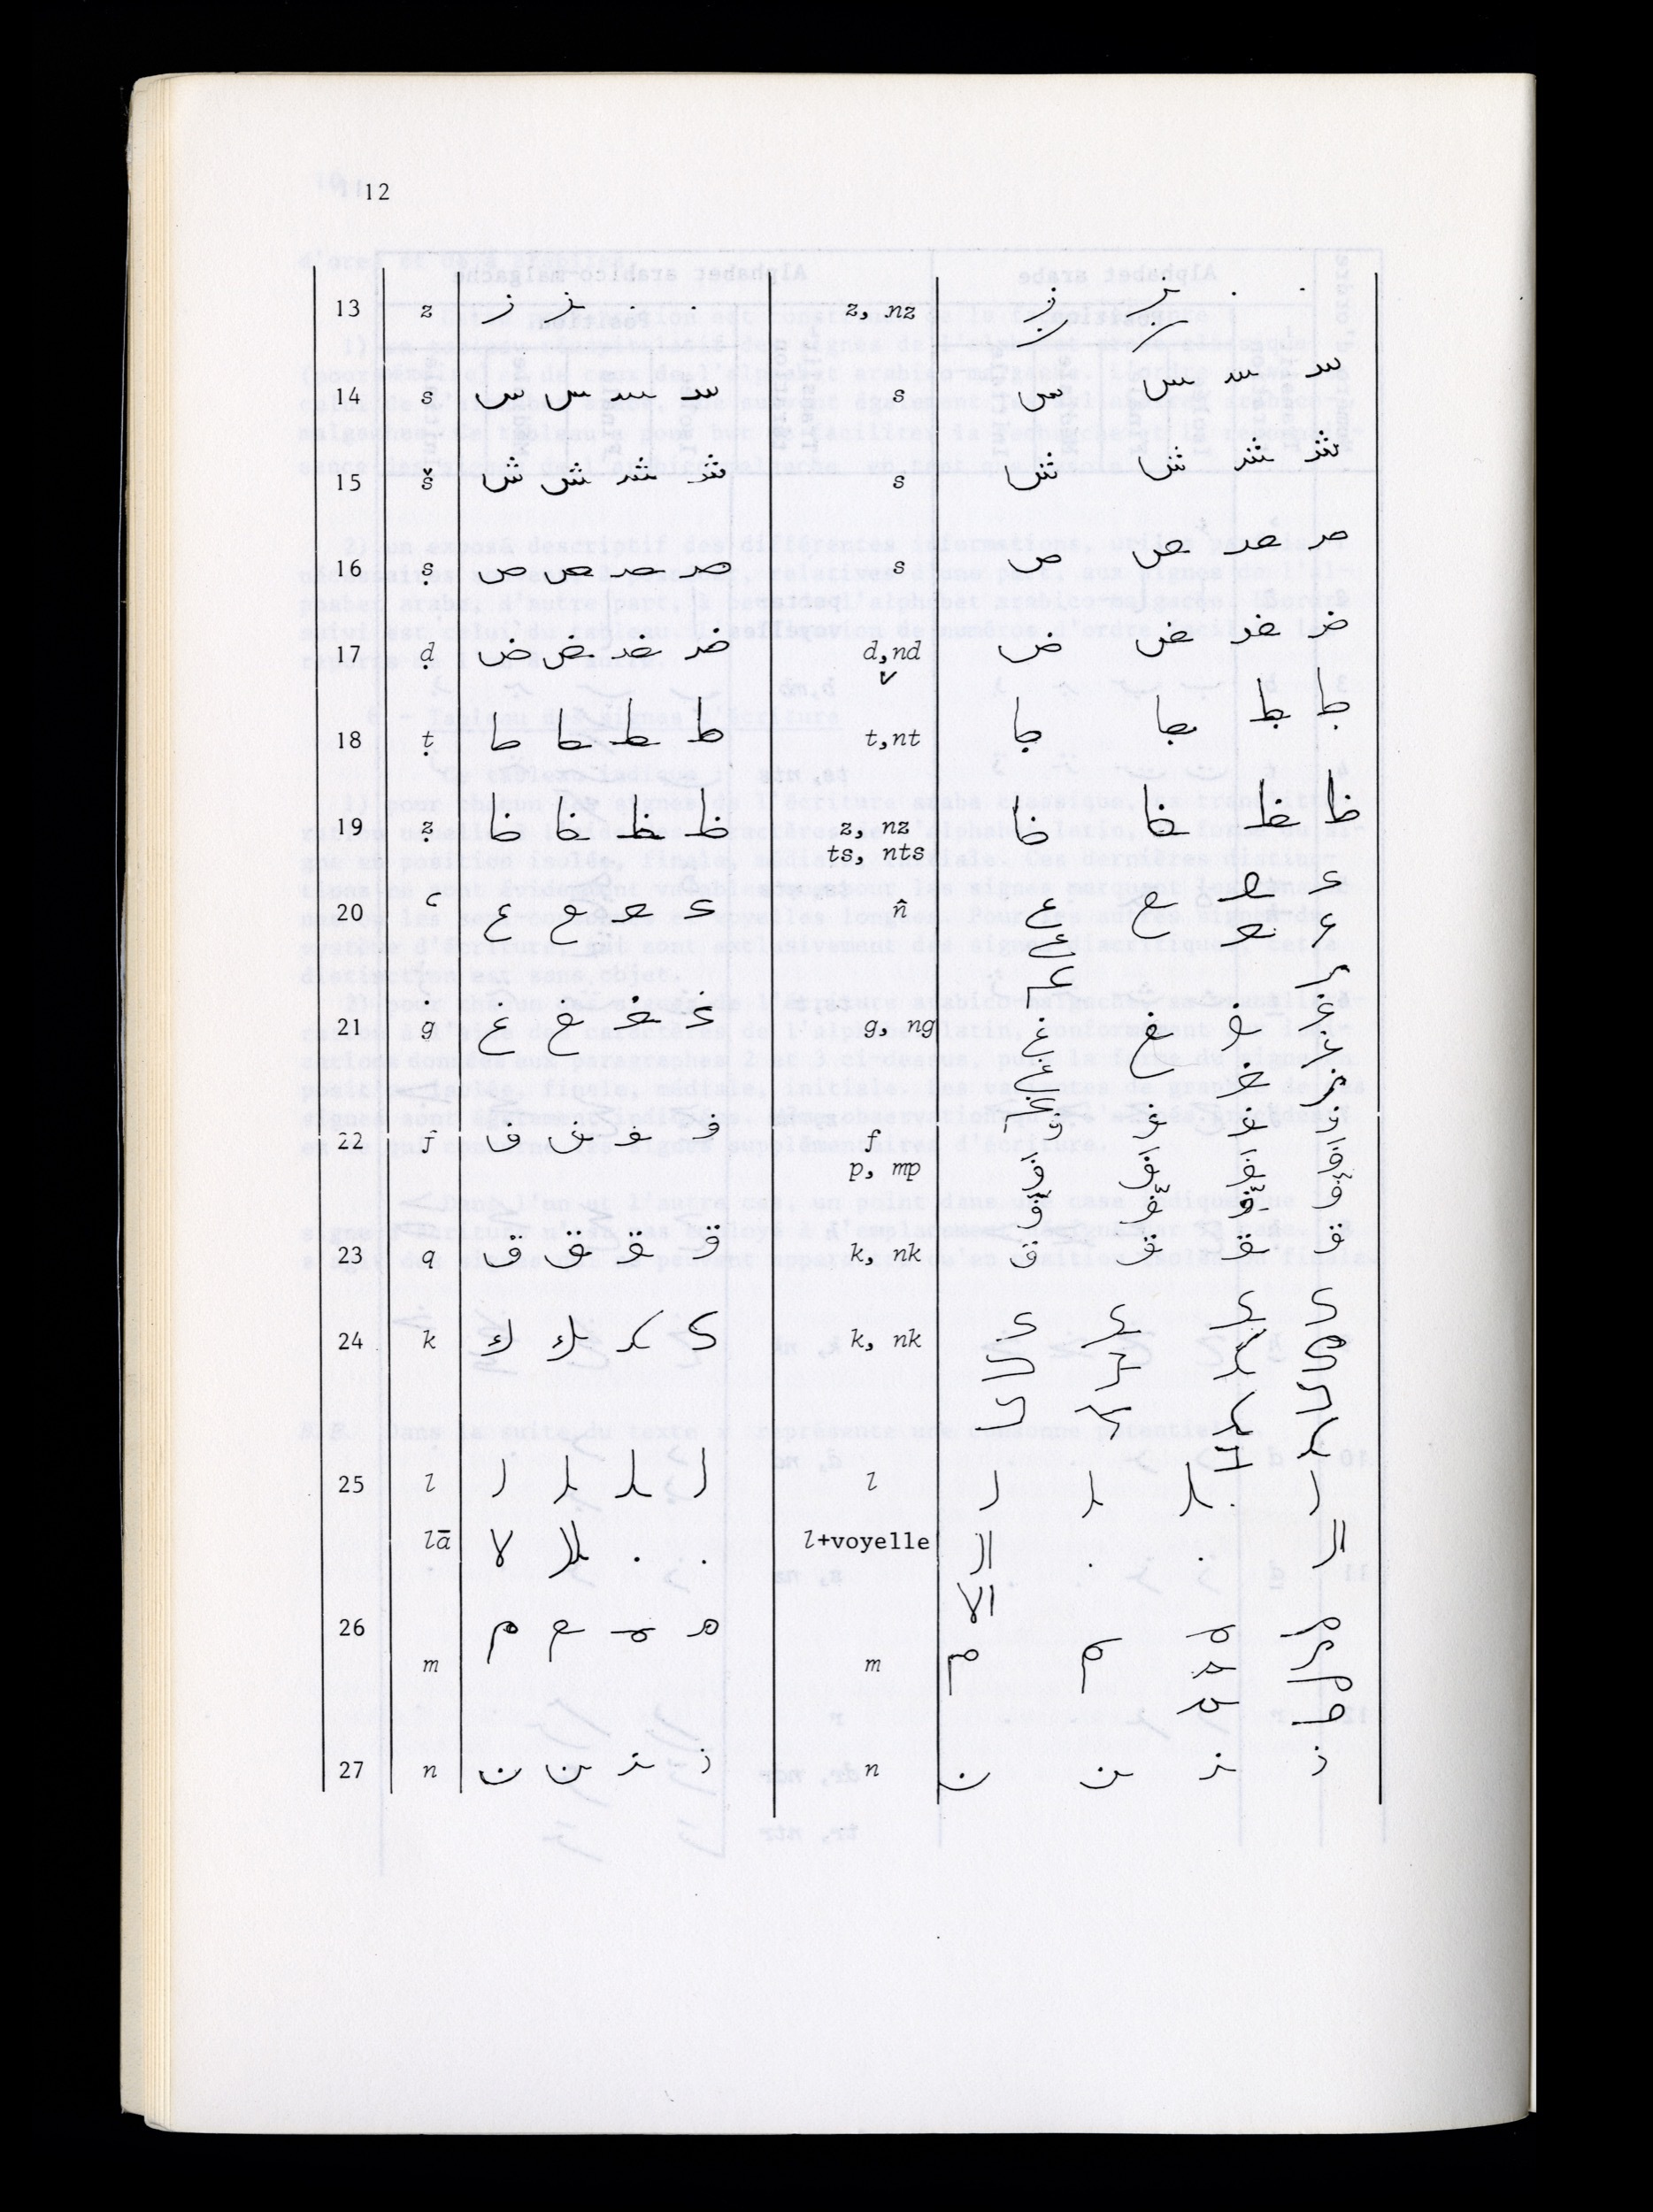 12
13 z ز ز . . z, nz ز ز . .
14 s س س س س s س س س س
15 š ش ش ش ش s ش ش ش ش
16 ṣ ص ص ص ص s ص ص ص ص
17 ḍ ض ض ض ض d,nd ض ض ض ض
18 ṭ ط ط ط ط t,nt ط ط ط ط
19 ẓ ظ ظ ظ ظ z, nz ظ ظ ظ ظ
ts, nts
20 ʿ ع ع ع ع n̂ ع ع ع ع
21 ġ غ غ غ غ g, ng غ غ غ غ
22 f ف ف ف ف f
p, mp
23 q ق ق ق ق k, nk ق ق ق ق
24 k ك ك ك ك k, nk
25 l ل ل ل ل l ل ل ل ل
lā لا لا . . l+voyelle ال . . ال
الا
26 م م م م
m m م م م م
27 n ن ن ن ن n ن ن ن ن